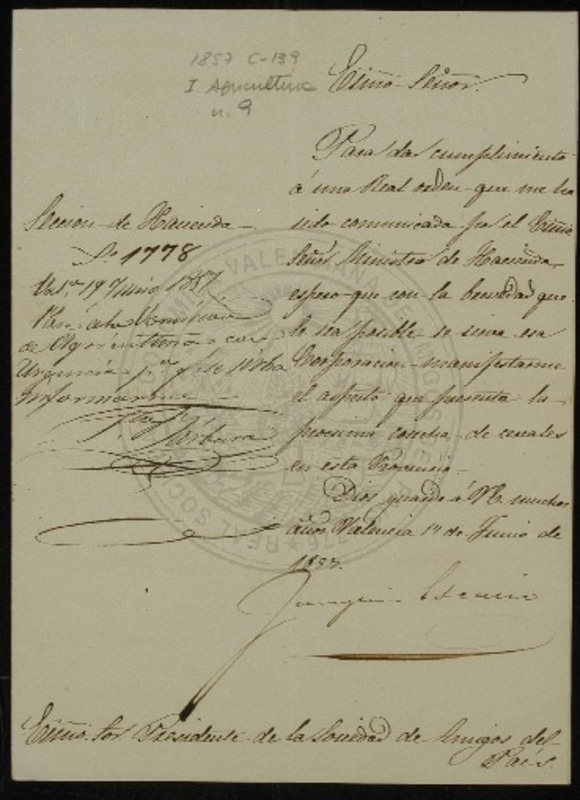 1857 C-139
I. Agricultura
n. 9
Exmo. Señor.
Para dar cumplimiento
á una Real orden que me ha
sido comunicada por el Exmo
Señor Ministro de Hacienda,
espero que con la brevedad que
le sea posible se sirva esa
Corporacion manifestarme
el aspecto que presenta la
proxima cosecha de cereales
en esta Provincia.
Dios guarde á V.E. muchos
años. Valencia 17 de Junio de
1857.
Joaquin Escario
Seccion de Hacienda
Nº 1778
19 Junio 1857
Comision
de Agricultura con
Urgencia
informarme
Exmo. Sor Presidente de la Sociedad de Amigos del
País.
REAL SOCIEDAD VALENCIANA AMIGOS DEL PAIS 1776